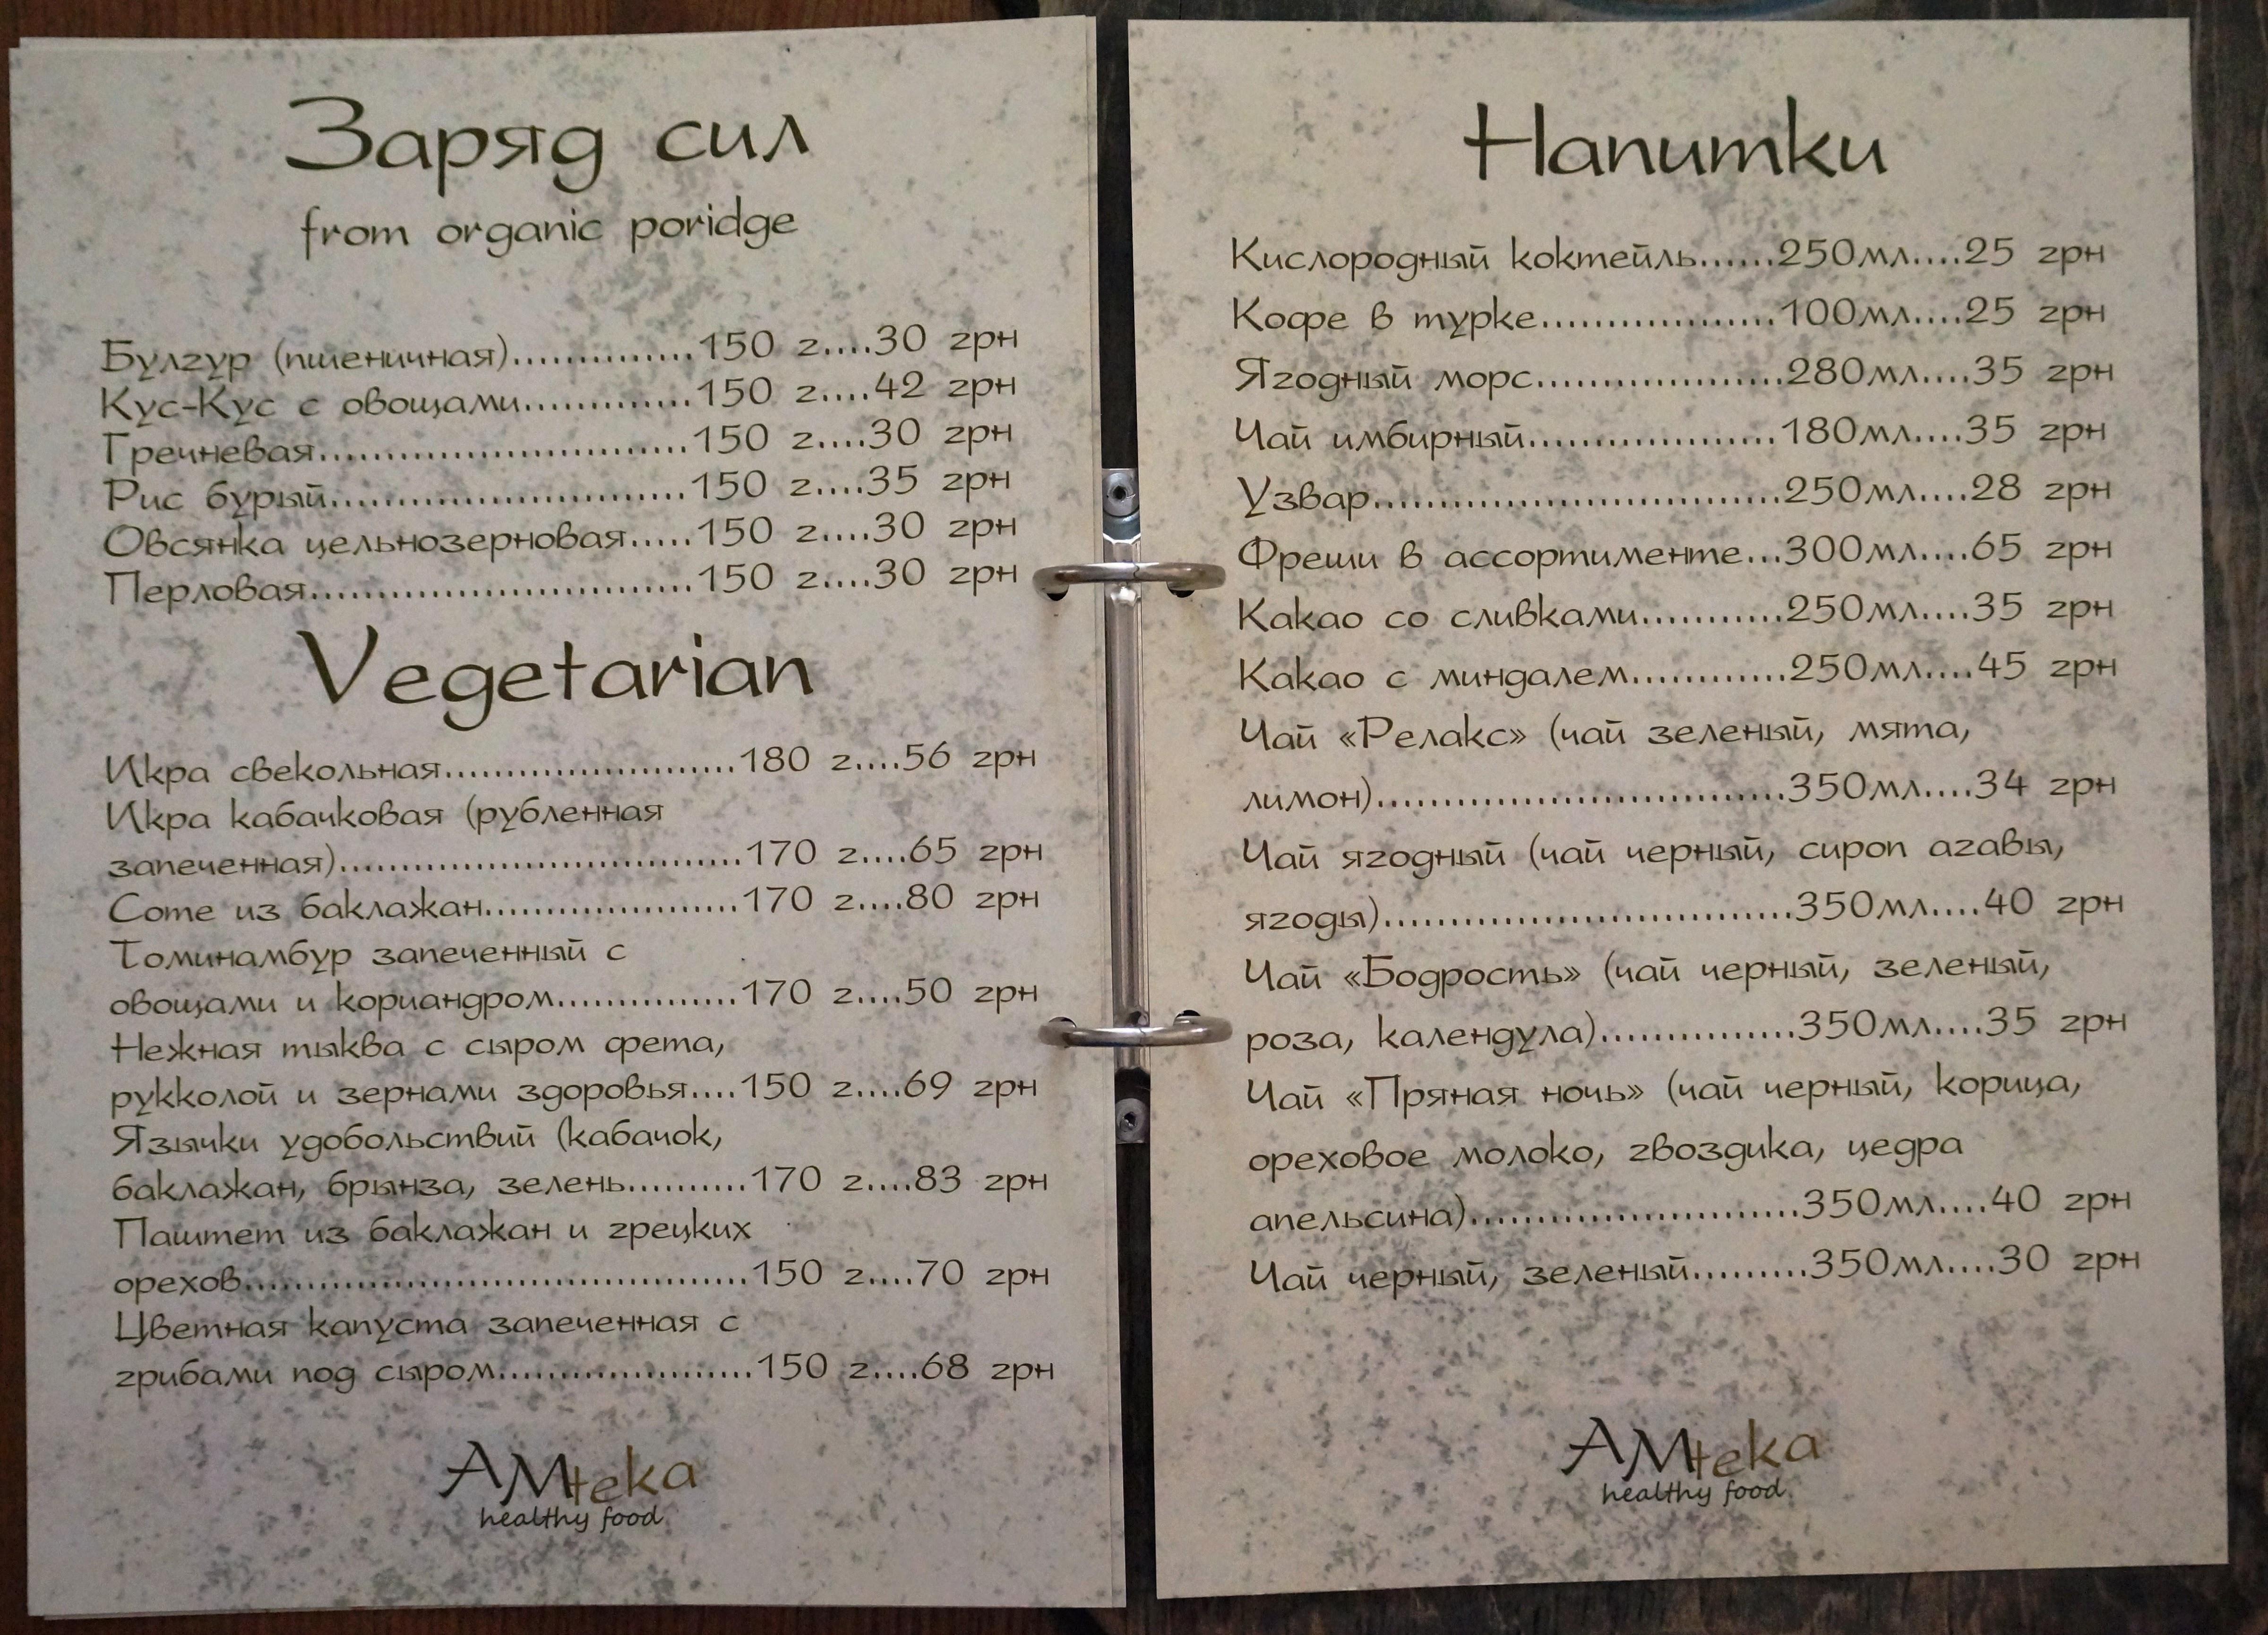 Заряд сил
from organic poridge
Булгур (пшеничная)..............150 г....30 грн
Кус-Кус с овощами.............150 г....42 грн
Гречневая............................150 г....30 грн
Рис бурый...........................150 г....35 грн
Овсянка цельнозерновая.....150 г....30 грн
Перловая.............................150 г....30 грн
Vegetarian
Икра свекольная........................180 г....56 грн
Икра кабачковая (рубленная
запеченная).................................170 г....65 грн
Соте из баклажан.....................170 г....80 грн
Томинамбур запеченный с
овощами и кориандром...............170 г....50 грн
Нежная тыква с сыром фета,
рукколой и зернами здоровья....150 г....69 грн
Язычки удобольствий (кабачок,
баклажан, брынза, зелень..........170 г....83 грн
Паштет из баклажан и грецких
орехов.........................................150 г....70 грн
Цветная капуста запеченная с
грибами под сыром.....................150 г....68 грн
AMteka
healthy food
Напитки
Кислородный коктейль......250мл....25 грн
Кофе в турке..................100мл....25 грн
Ягодный морс...................280мл....35 грн
Чай имбирный...................180мл....35 грн
Узвар...............................250мл....28 грн
Фреши в ассортименте...300мл....65 грн
Какао со сливками...........250мл....35 грн
Какао с миндалем............250мл....45 грн
Чай «Релакс» (чай зеленый, мята,
лимон)...............................350мл....34 грн
Чай ягодный (чай черный, сироп агавы,
ягоды)...............................350мл....40 грн
Чай «Бодрость» (чай черный, зеленый,
роза, календула)...............350мл....35 грн
Чай «Пряная ночь» (чай черный, корица,
ореховое молоко, гвоздика, цедра
апельсина).........................350мл....40 грн
Чай черный, зеленый.........350мл....30 грн
AMteka
healthy food